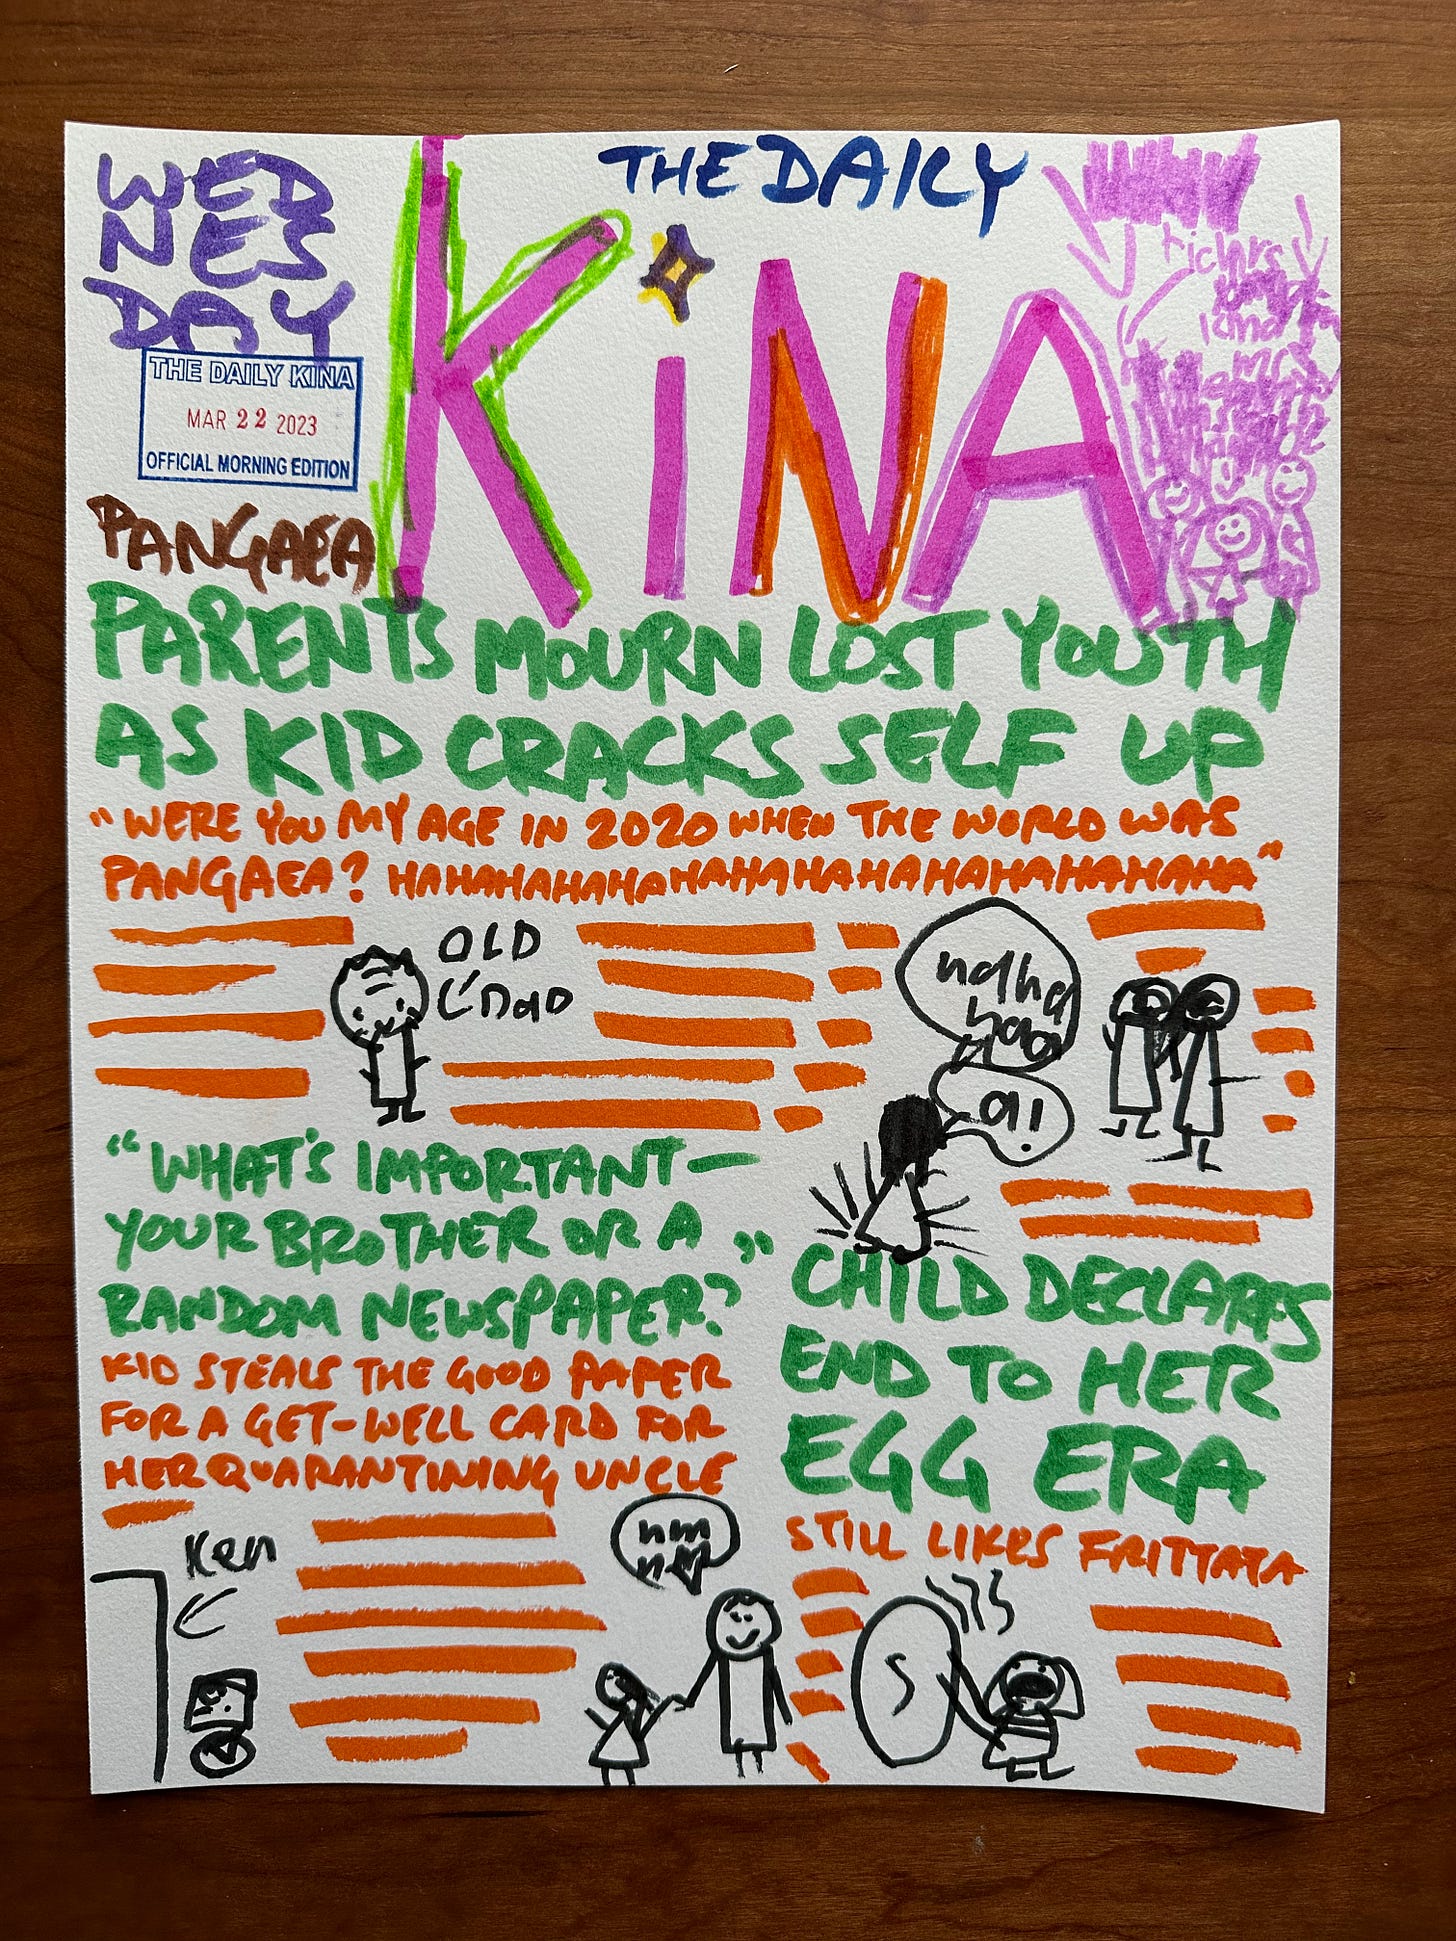 WED
NES
DAY
THE DAILY
KiNA
THE DAILY KINA
MAR 22 2023
OFFICIAL MORNING EDITION
PANGAEA
PARENTS MOURN LOST YOUTH
AS KID CRACKS SELF UP
"WERE YOU MY AGE IN 2020 WHEN THE WORLD WAS
PANGAEA? HAHAHAHAHAHAHAHAHAHAHAHAHAHAHAHA"
OLD
DAD
haha
a!
"WHAT'S IMPORTANT—
YOUR BROTHER OR A
RANDOM NEWSPAPER?"
KID STEALS THE GOOD PAPER
FOR A GET-WELL CARD FOR
HER QUARANTINING UNCLE
Ken
CHILD DECLARES
END TO HER
EGG ERA
STILL LIKES FRITTATA